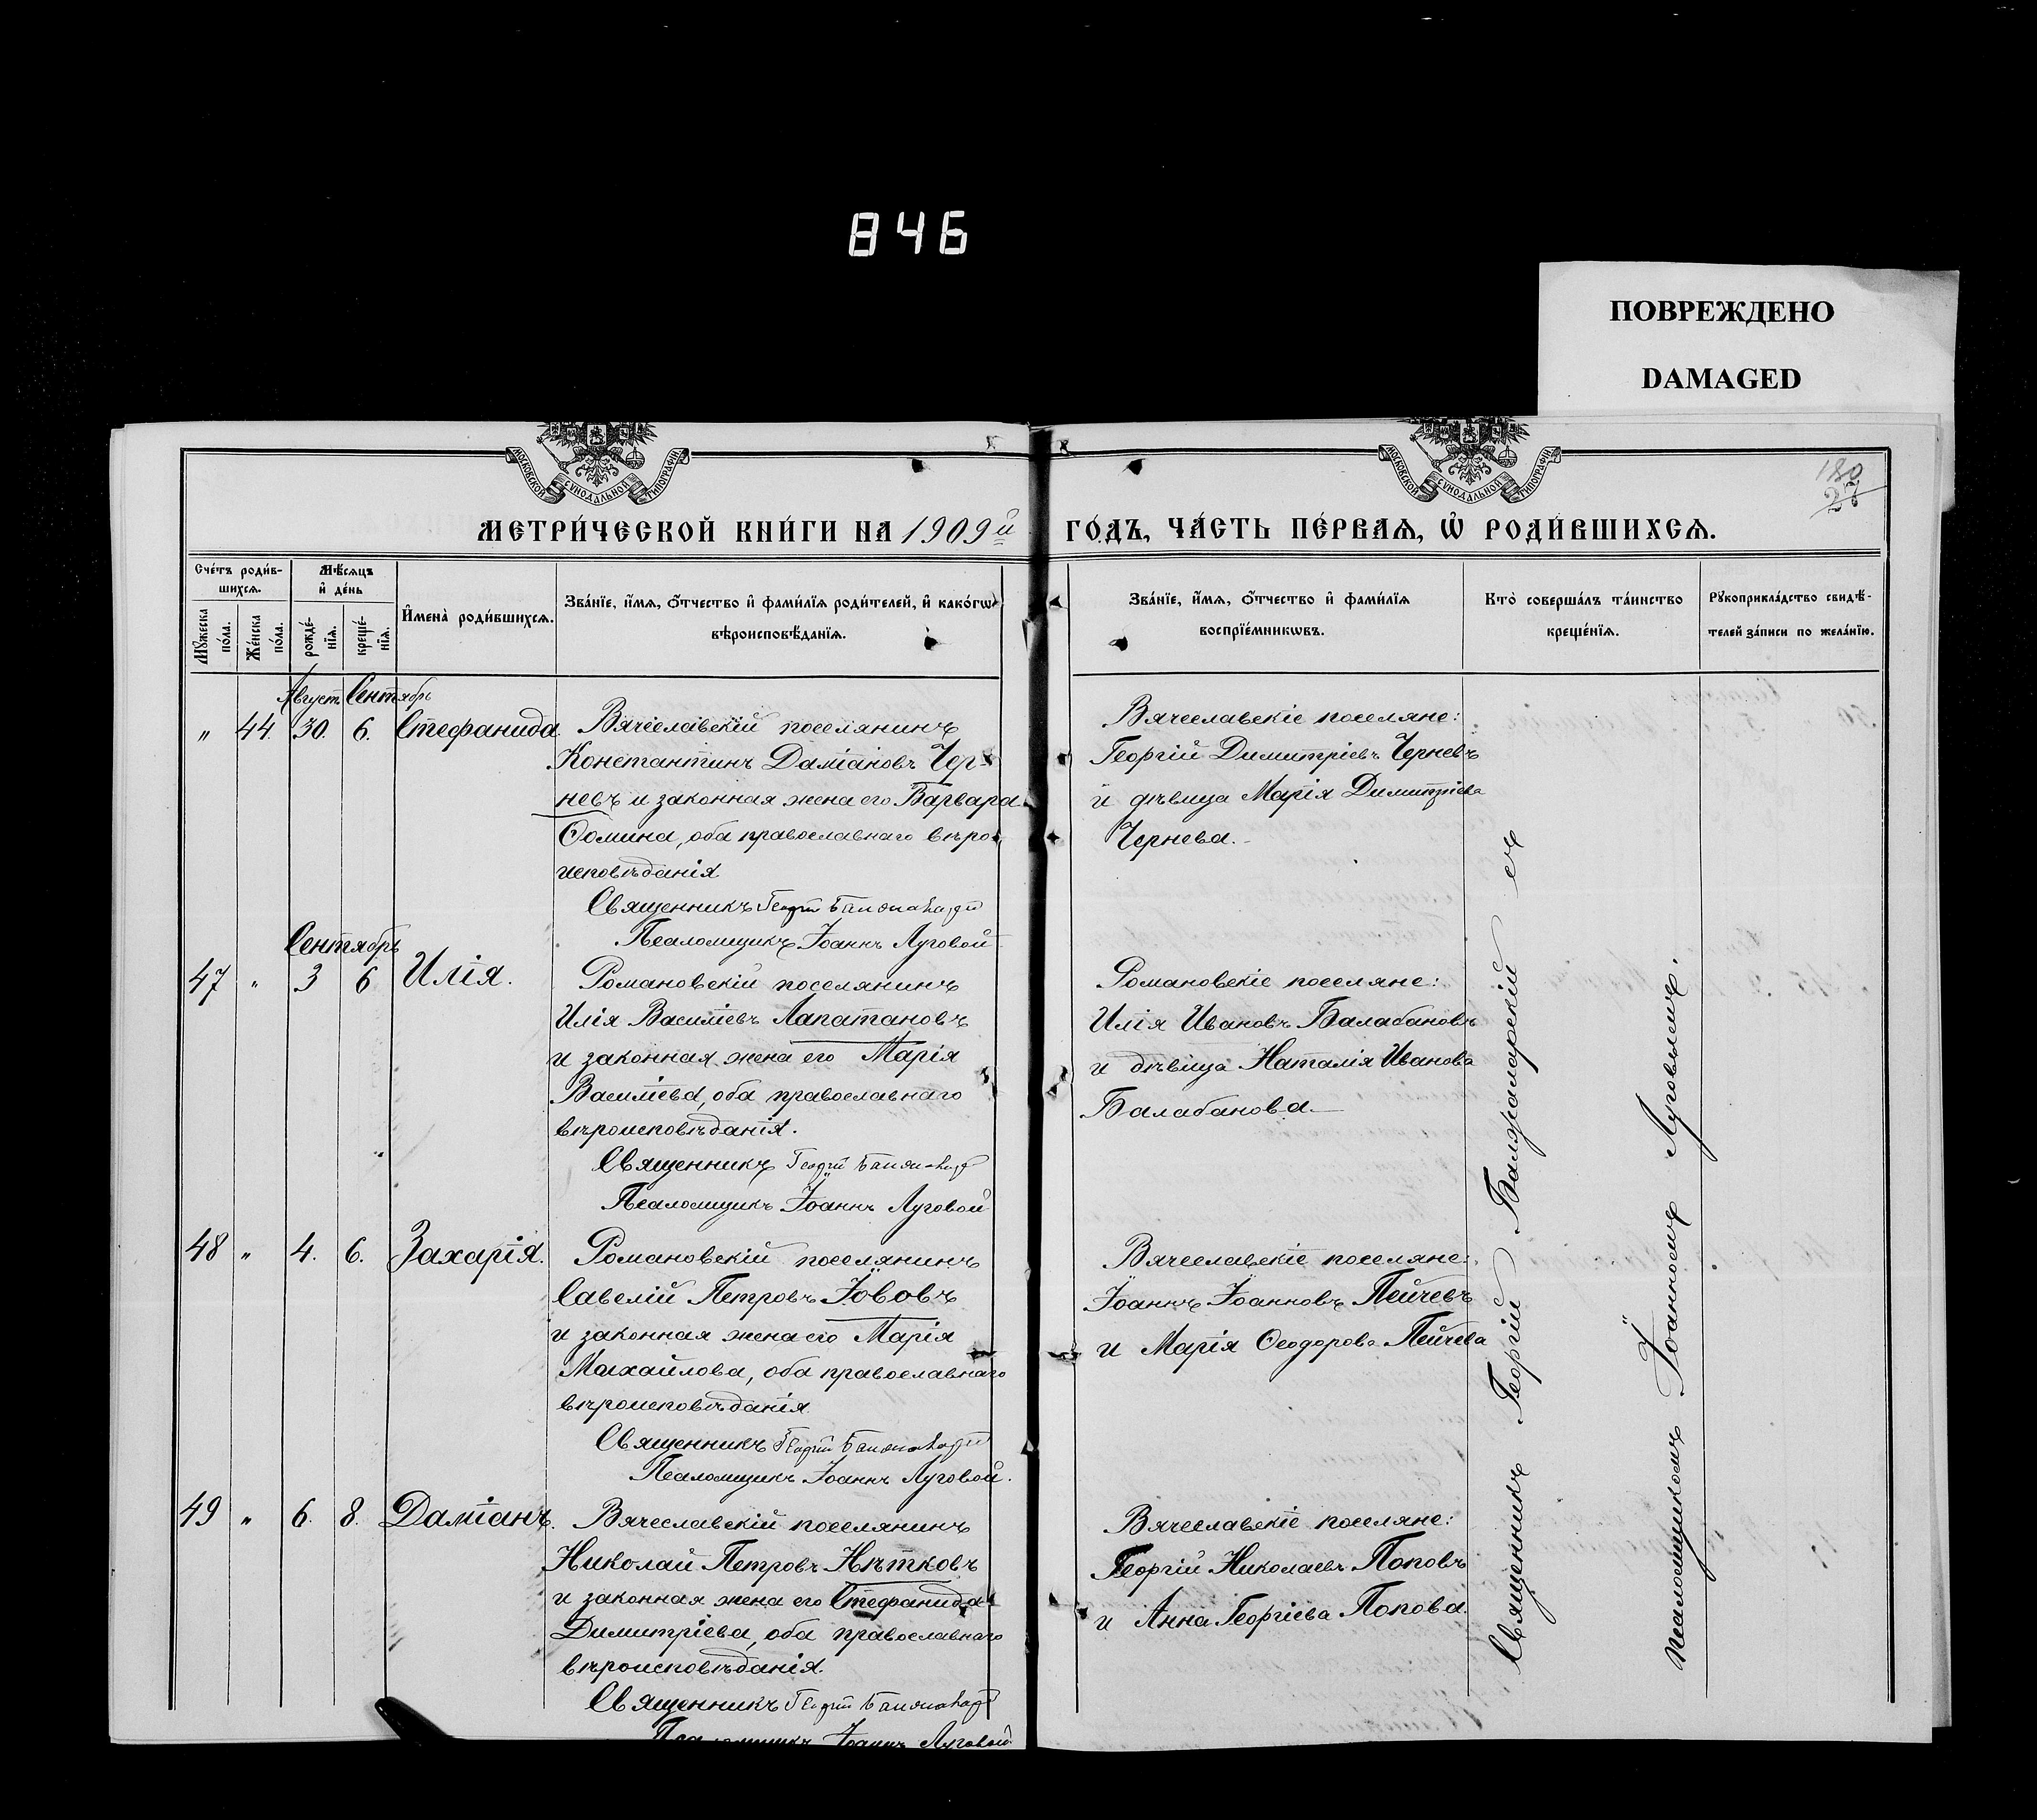 846
ПОВРЕЖДЕНО
DAMAGED
МОСКОВСКОЙ СУНОДАЛЬНОЙ ТИПОГРАФІИ
МОСКОВСКОЙ СУНОДАЛЬНОЙ ТИПОГРАФІИ
180
МЕТРИ́ЧЕСКОЙ КНИ́ГИ НА 1909й ГО́ДЪ, ЧА́СТЬ ПЕ́РВАѦ, Ѡ҆ РОДИ́ВШИХСѦ.
Сче́тъ роди́в-
шихсѧ.
Мꙋ́жеска по́ла.
Же́нска по́ла.
Мѣ́сѧцъ
и҆ де́нь
рожде́-
нїѧ.
креще́-
нїѧ.
И҆мена̀ роди́вшихсѧ.
Зва́нїе, и҆́мѧ, ѻ҆́тчество и҆ фами́лїѧ роди́телей, и҆ како́гѡ
вѣроисповѣ́данїѧ.
Зва́нїе, и҆́мѧ, ѻ҆́тчество и҆ фами́лїѧ
воспрїе́мникѡвъ.
Кто̀ соверша́лъ та́инство
креще́нїѧ.
Рꙋкоприкла́дство свидѣ́-
телей за́писи по жела́нїю.
Августъ Сентябрь
„ 44. 30. 6. Стефанида.
Вячеславскій поселянинъ
Константинъ Даміановъ Чер-
невъ и законная жена его Варвара
Ѳомина, оба православнаго вѣро-
исповѣданія
Священникъ Георгій
Псаломщикъ Іоаннъ Луговой
Вячеславскіе поселяне:
Георгій Димитріевъ Черневъ
и дѣвица Марія Димитріева
Чернева.
Сентябрь
47 „ 3 6 Илія.
Романовскій поселянинъ
Илія Василіевъ Лапатановъ
и законная жена его Марія
Василіева, оба православнаго
вѣроисповѣданія.
Священникъ Георгій
Псаломщикъ Іоаннъ Луговой
Романовскіе поселяне:
Илія Ивановъ Балабановъ
и дѣвица Наталія Иванова
Балабанова.
48 „ 4. 6. Захарія.
Романовскій поселянинъ
Савелій Петровъ Іововъ
и законная жена его Марія
Михайлова, оба православнаго
вѣроисповѣданія.
Священникъ Георгій
Псаломщикъ Іоаннъ Луговой.
Вячеславскіе поселяне:
Іоаннъ Іоанновъ Пейчевъ
и Марія Ѳеодорова Пейчева
49 „ 6. 8. Даміанъ.
Вячеславскій поселянинъ
Николай Петровъ Нѣтковъ
и законная жена его Стефанида
Димитріева, оба православнаго
вѣроисповѣданія.
Священникъ Георгій
Псаломщикъ Іоаннъ Луговой
Вячеславскіе поселяне:
Георгій Николаевъ Поповъ
и Анна Георгіева Попова.
Священникъ Георгій съ
псаломщикомъ Іоанномъ Луговымъ.